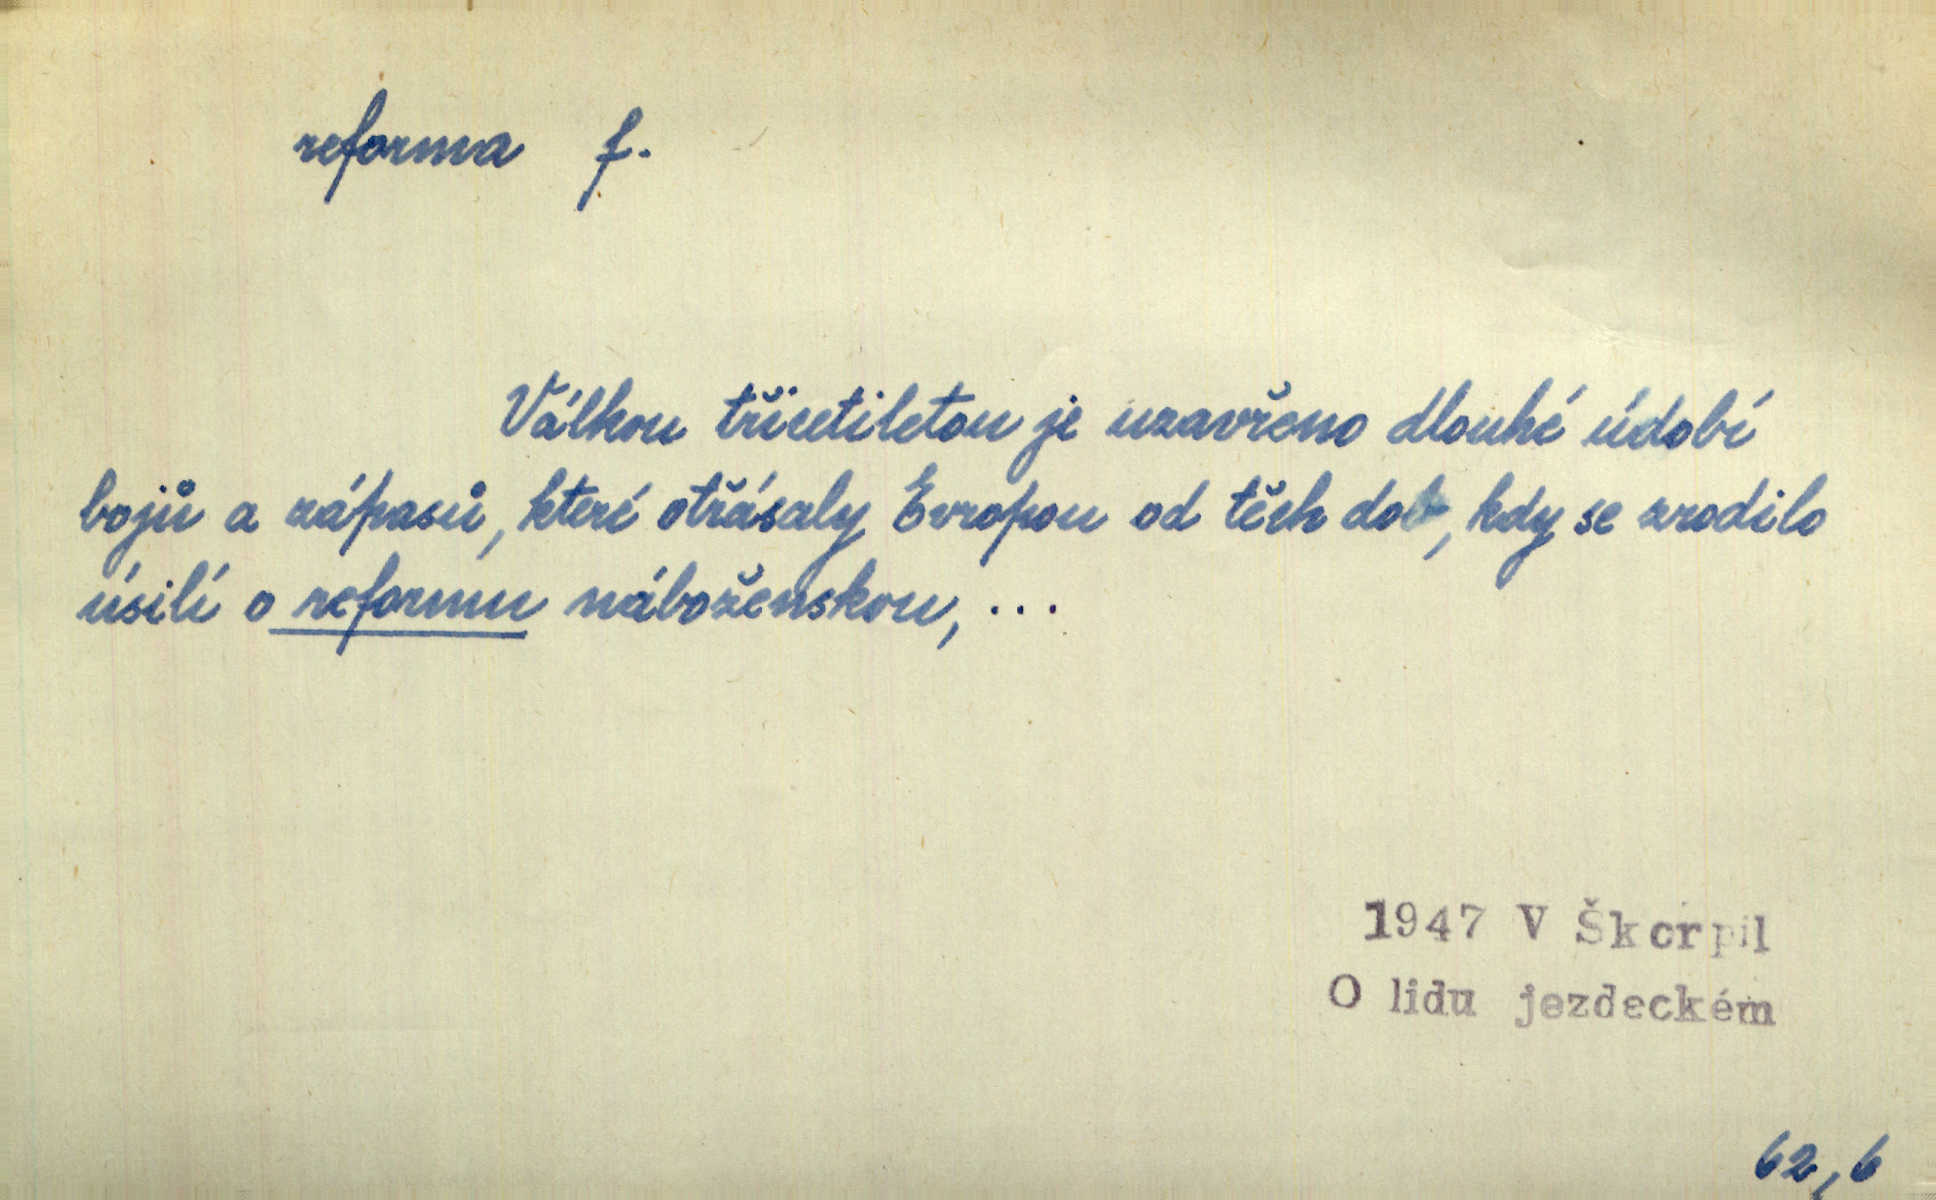 reforma f.
Válkou třicetiletou je uzavřeno dlouhé údobí
bojů a zápasů, které otřásaly Evropou od těch dob, kdy se zrodilo
úsilí o reformu náboženskou, ...
1947 V Škorpil
O lidu jezdeckém
62,6